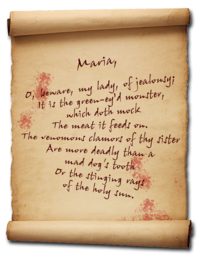 Maria,
O, beware, my lady, of jealousy;
It is the green-ey'd monster,
which doth mock
The meat it feeds on.
The venomous clamors of thy sister
Are more deadly than a
mad dog's tooth
Or the stinging rays
of the holy sun.